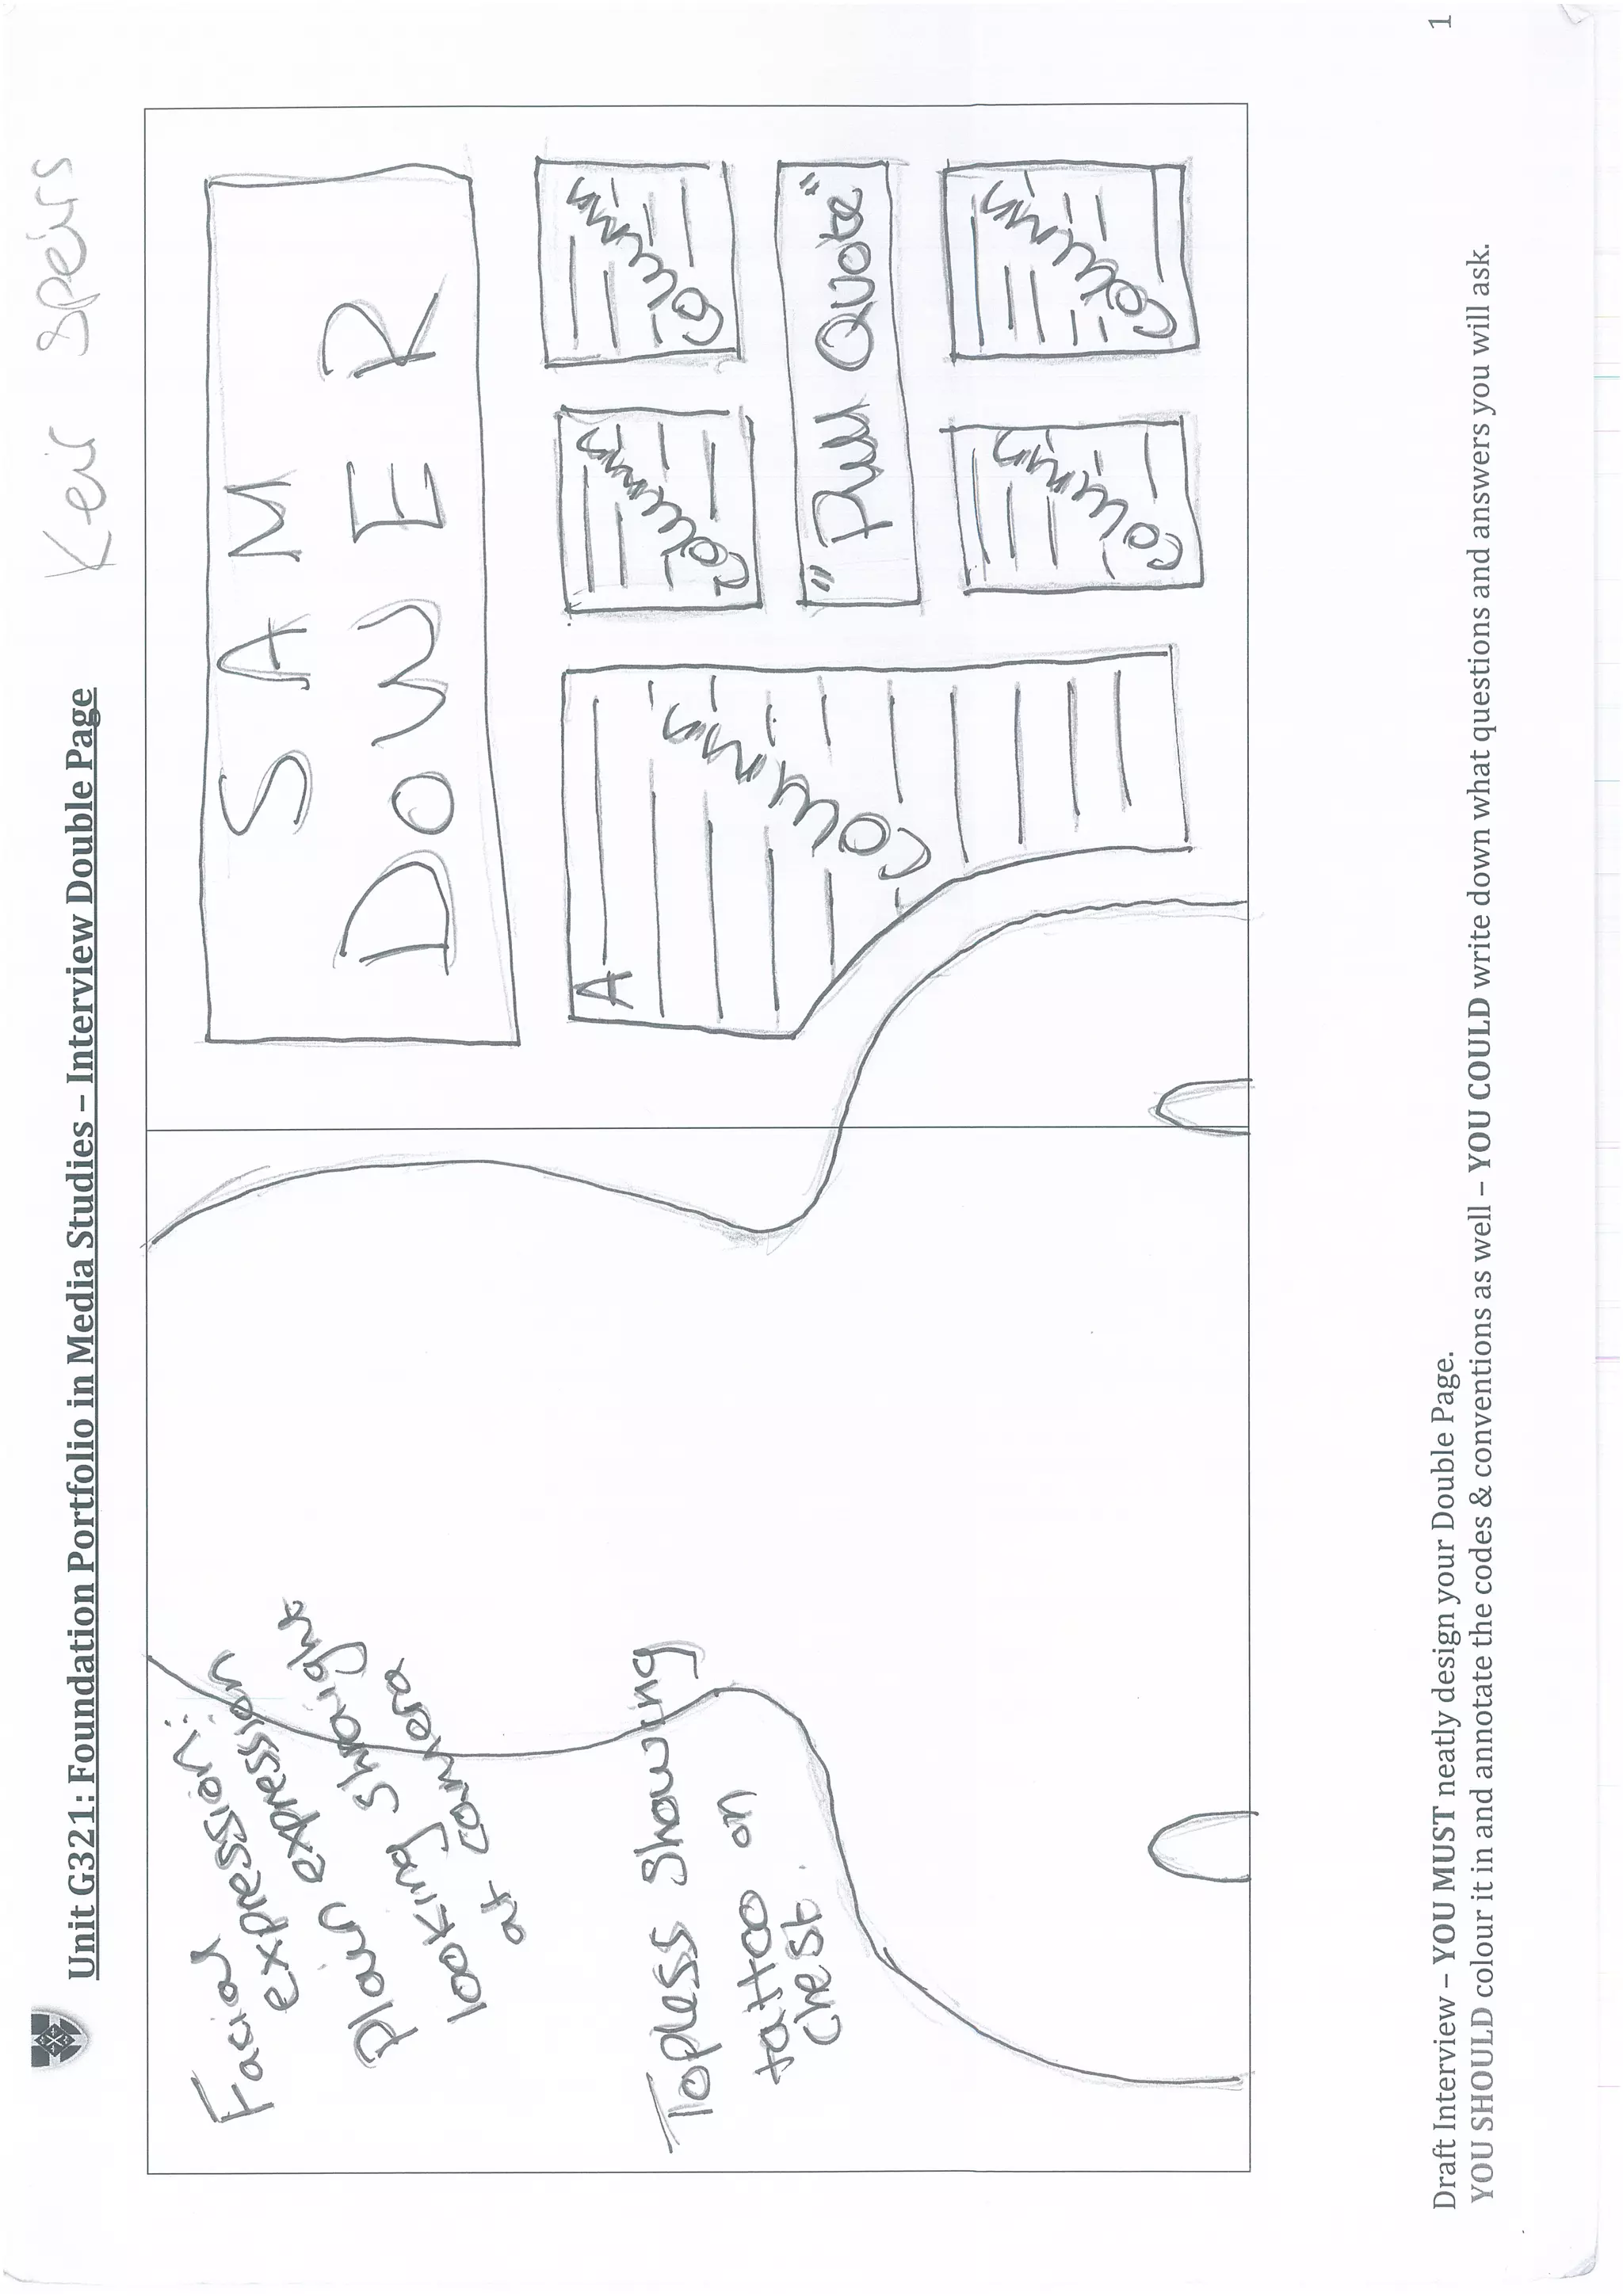 Keir Speirs
Unit G321: Foundation Portfolio in Media Studies – Interview Double Page
Facial
expression:
expression
Plain expression
looking straight
at camera
Topless showing
tattoo on
chest.
SAM
DOWER
A
Columns
Columns
Columns
"Pull Quote"
Columns
Columns
Draft Interview – YOU MUST neatly design your Double Page.
YOU SHOULD colour it in and annotate the codes & conventions as well – YOU COULD write down what questions and answers you will ask.
1